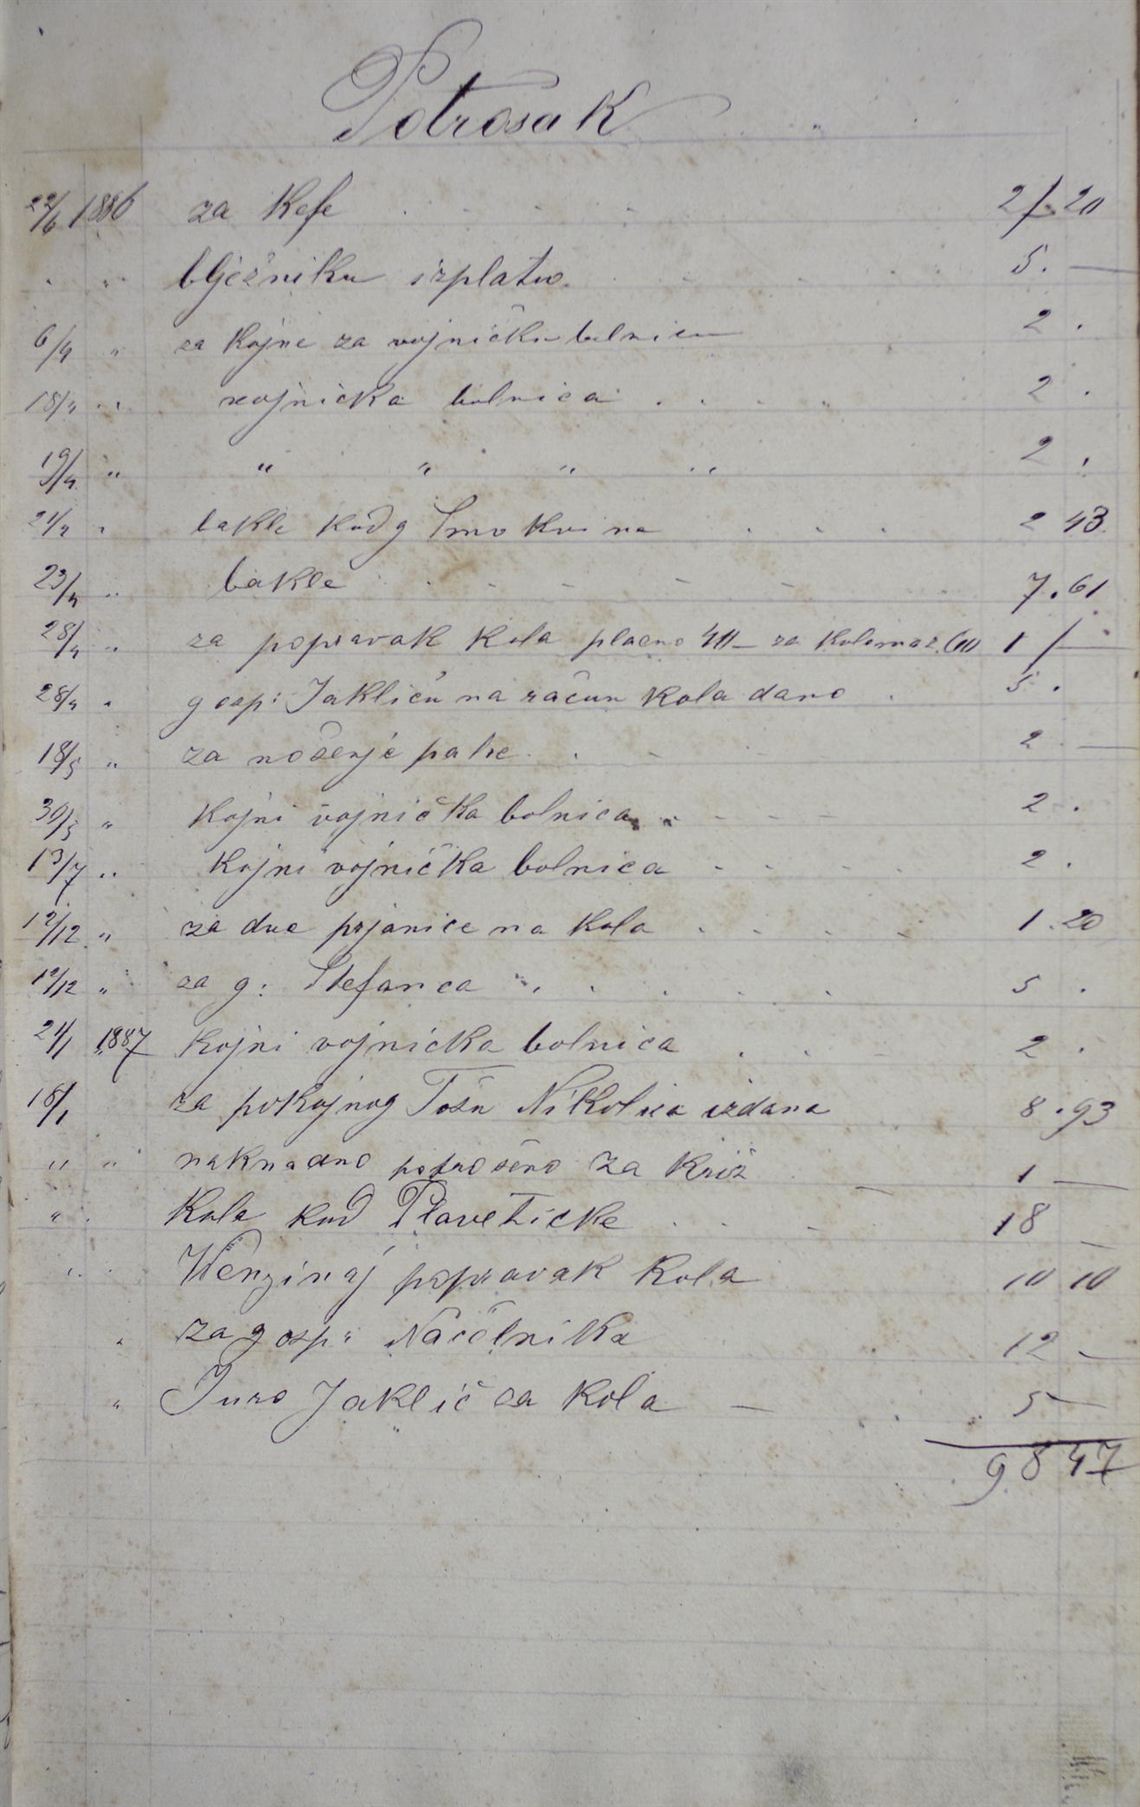 Potrosak
22/6 1886 za Kefe 2 / 20
" " bljižniku izplatio 5. —
6/4 " za Kojne za vojničku bolnicu 2 .
18/4 " vojnička bolnica 2 .
19/4 " " " " " 2 .
21/4 " bakle kod g Smokvina 2 43
23/4 " bakle 7.61
28/4 " za popravak kola plaćno 40 – za kolomaz. 60 1 / —
28/4 " gosp: Jakliću na račun kola dano 5 .
18/5 " za nošenje 2 —
30/5 " Kojni vojnička bolnica 2 .
13/7 " Kojni vojnička bolnica 2 .
12/12 " za dve na kola 1.20
12/12 " za g: Stefanca 5 .
21/1 1887 Kojni vojnička bolnica 2 .
18/1 za pokojnog Tošu Nikolića izdana 8.93
" " naknadno potrošeno za križ 1 —
" " Kola kod Plavetičke 18 —
" popravak kola 10 10
" za gosp: Načelnika 12 —
" Juro Jaklić za kola — 5 —
98 47